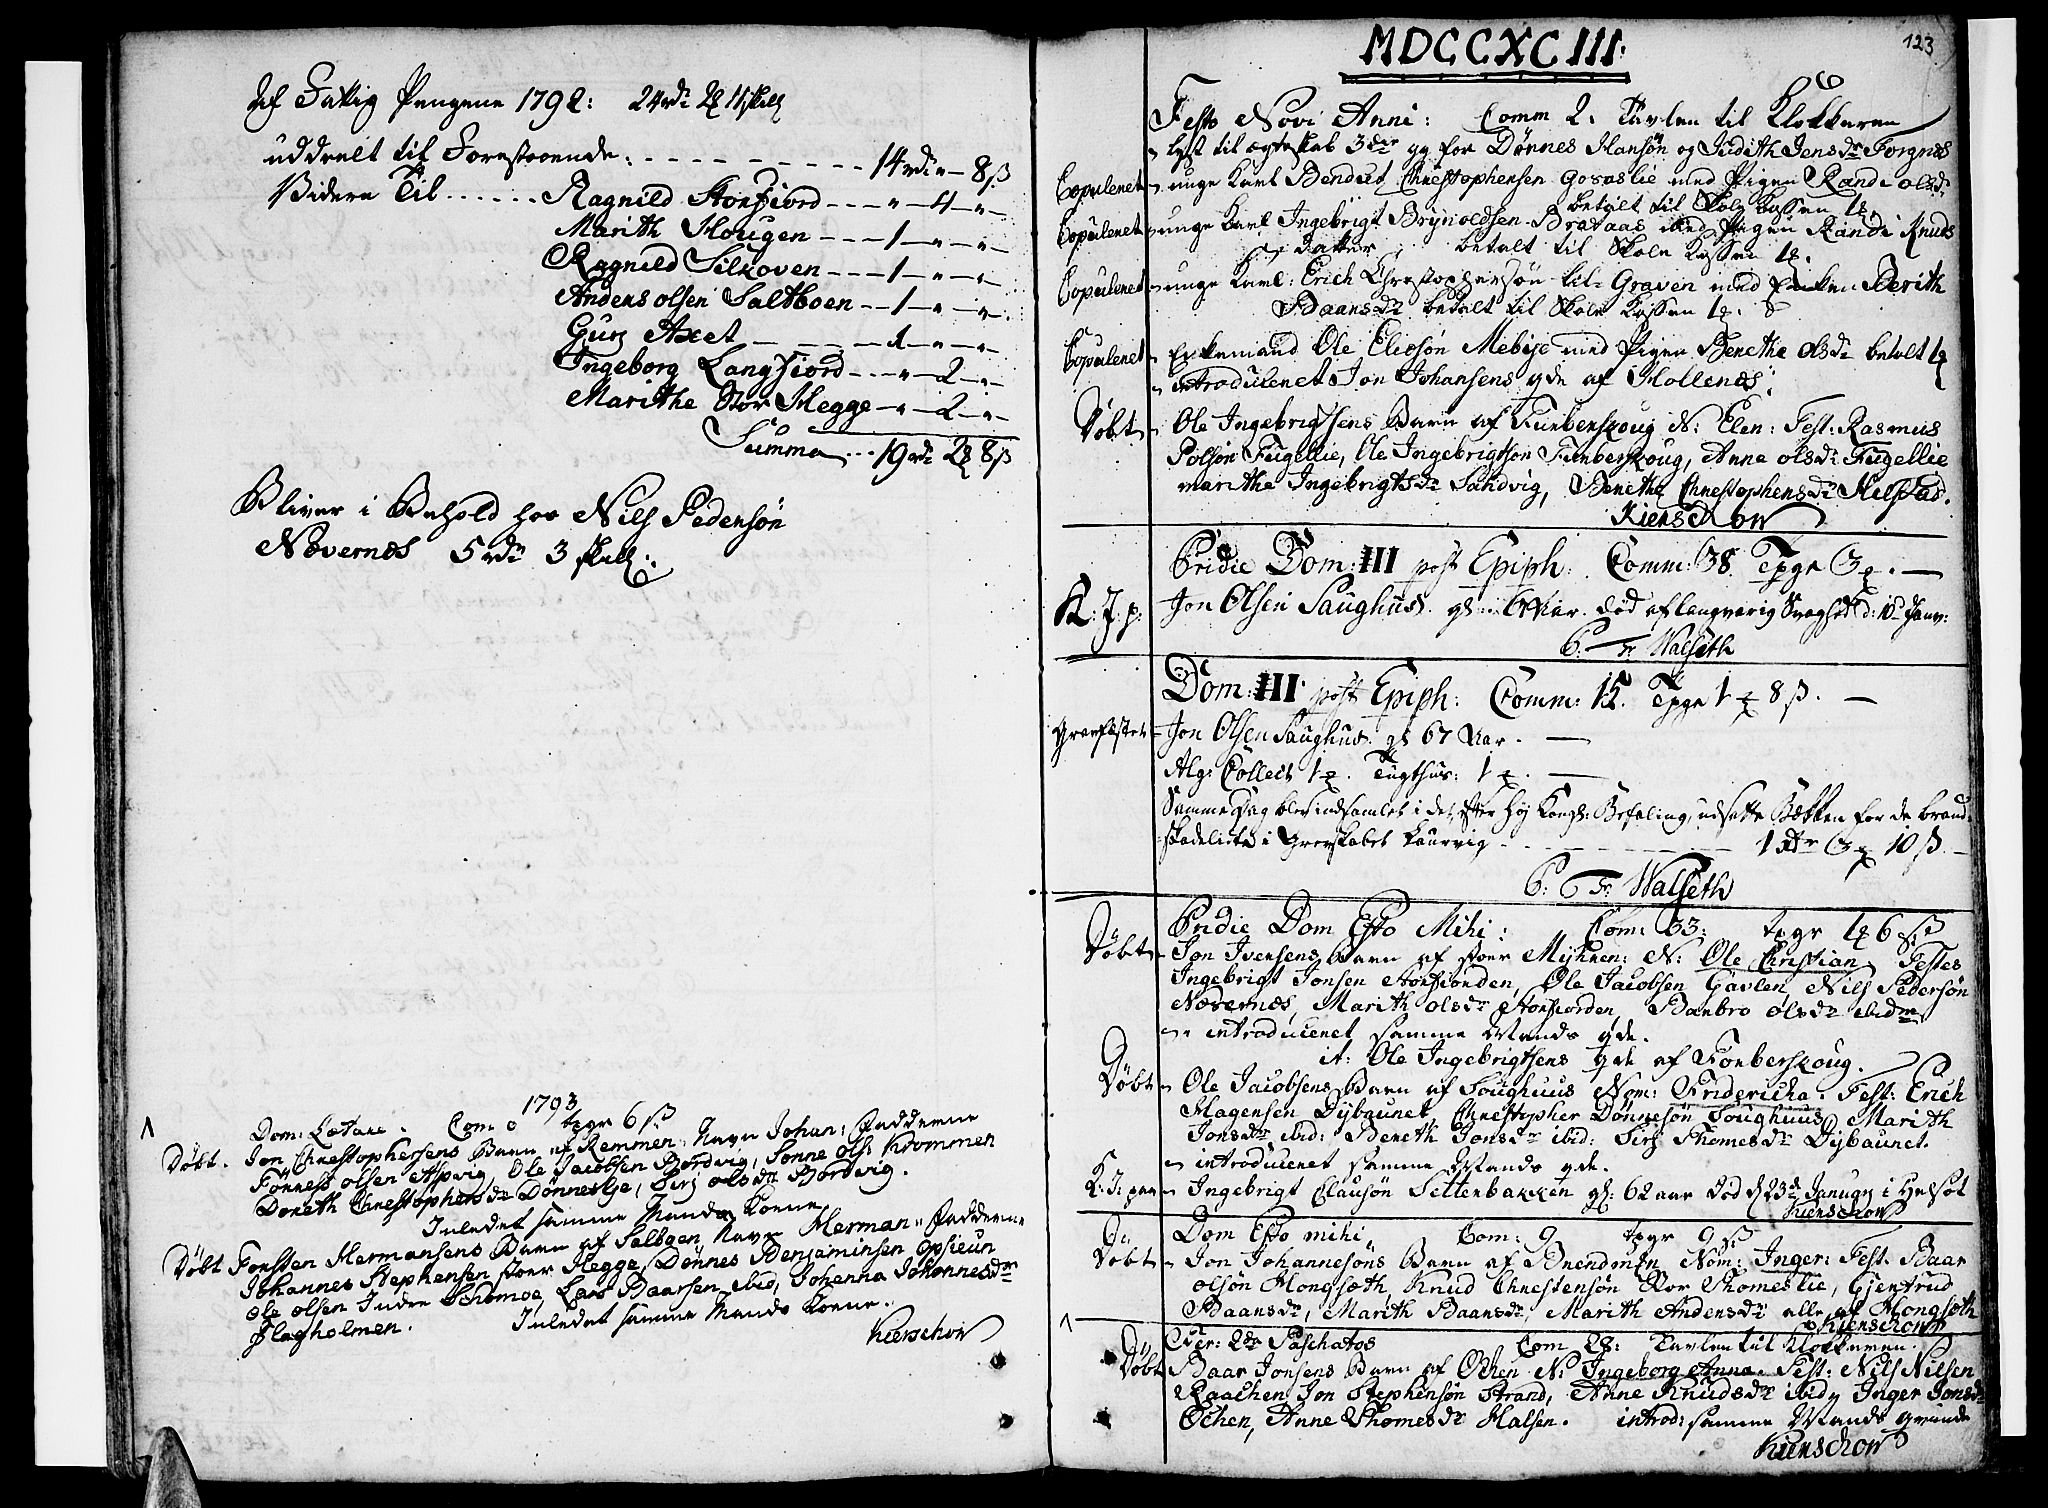 Af Fattig Pengene 1792: 24 rdr 2 ℔ 11 skill
uddeelt til Forestaaende: 14 rdr " 8 ß
Videre Til ...... Ragnild Storfiord --- " 4 "
Marith Hougen --- 1 " "
Ragnild Silkoven --- 1 " "
Anders olsen Saltboen -- 1 " "
Guri Axet --- 1 " "
Ingeborg Langfiord --- " 2 "
Marithe Stor Hegge -- " 2 "
Summa ... 19 rdr 2 ℔ 8 ß
Bliver i Behold hos Nils Pedersøn
Nøvernes 5 rdr 3 skill:
1793
Dom: Lætare. Com: 0 tpgr 6 ß
Døbt. Jon Christophersens Barn af Remmen, Navn Johan: Fadderne
Tønnes olsen Aspvig, Ole Jacobsen Bordvig, Sønne ols: Krommen
Dorteth Christophersdr Dønneslie, Siri olsdr Bordvig.
Inledet samme Mands Kone.
Døbt Torsten Hermansens Barn af Salbgen, Navn Herman: Fadderne
Johannes Stephensen stoer Hegge, Dønnes Benjaminsen opsieun
ole olsen Indre Thomøe, Lars Baarsen ibid, Johanna Johannesdr
Flagholmen. Inledet samme Mands Kone.
Kierschow
123
MDCCXCIII.
Festo Novi Anni: Comm 2: Tavlen til Klokkeren
lyst til ægteskab 3de gg for Dønnes Hansøn og Judith Jensdr Forgnæs
Copuleret unge Karl Bendt Christophersen Gosaslie med Pigen Randi olsdr
betalt til Skole Kassen 1 ℔.
Copuleret unge Karl Ingebrigt Brynoldsen Brataas med Pigen Randi Knuds
datter betalt til Skole Kassen 1 ℔.
Copuleret unge Karl: Erich Christophersøn lil- Graven med Enken Berith
Baarsdr betalt til Skole Kassen 1 ℔.
Copuleret Enkemand Ole Eliesøn Mebye med Pigen Berethe olsdr betalt 1 ℔
introduceret Jon Johansens qde af Hollenes.
Døbt Ole Ingebrigtsens Barn af Furberskoug N: Elen: Test: Rasmus
Polsøn Fugelie, Ole Ingebrigtsøn Furberskoug, Anne olsdr Fugellie
marithe Ingebrigtsdr Sandvig, Berethe Christophersdr Helstad.
Kierschow
Pridie Dom: III post Epiph: Comm: 38. Tpgr 3 ℔.
K: J: p: Jon Olsen Saughus. gl: 67 Aar. død af langvarig Svaghed d: 10d Janv:
C: Fr: Walseth
Dom: III post Epiph: Comm: 15. Tpgr 1 ℔ 8 ß.
Gravfæstet Jon Olsen Saughus. gl 67 Aar.
Alg: Collect 1 ℔. Tugthus: 1 ℔.
Sammedag blev indsamlet i det, efter Høj Kongl: Befaling, udsatte Bækken for de brand-
skadelidte i Grevskabet Laurvig 1 rdr 3 ℔ 10 ß.
C: Fr: Walseth
Pridie Dom Esto Mihi: Com: 33: tpgr 1 ℔ 6 ß
Døbt Jon Iversens Barn af stoer Myhren: N: Ole Christian. Testes
Ingebrigt Jonsen Storfiorden, Ole Jacobsen Gavlen, Nils Pedersøn
Nøvernes, Marith olsdr Storfiorden, Barbro olsdr ibidm
introduceret samme Mands qde.
it: Ole Ingebrigtsens qde af Forberskoug.
Døbt Ole Jacobsens Barn af Soughuus Nom: Fridericha. Test: Erich
Hagensen Dybaunet, Christopher Dønnesøn Soughuus, Marith
Jonsdr ibid: Bereth Jonsdr ibid: Siri Thomesdr Dybaunet.
introduceret samme Mands qde.
K: J: paa Ingebrigt Clausøn Settenbakken gl: 62 aar død d 23de Januarj i Helsot
Kierschow
Dom Esto mihi, Com: 9 tpgr 9 ß
Døbt Jon Johannesøns Barn af Brendmyr, Nom: Inger: Test. Baar
olsøn Hongsæth, Knud Christensøn Thomeslie, Gjertrud
Baarsdr, Marith Baarsdr, Marith Andersdr alle af Hongsøth
Kierschow
Døbt Fer: 2da Paschatos Com 28: Tavlen til Klokkeren.
Baar Jonsens Barn af Ochen N: Ingeborg Anna. Test: Nils Nilsen
Raachen, Jon Stephensøn Strand, Anne Knudsdr ibid, Inger Jonsdr
Ochen, Anne Thomesdr Halsen. introd: samme Mands qvinde
Kierschow